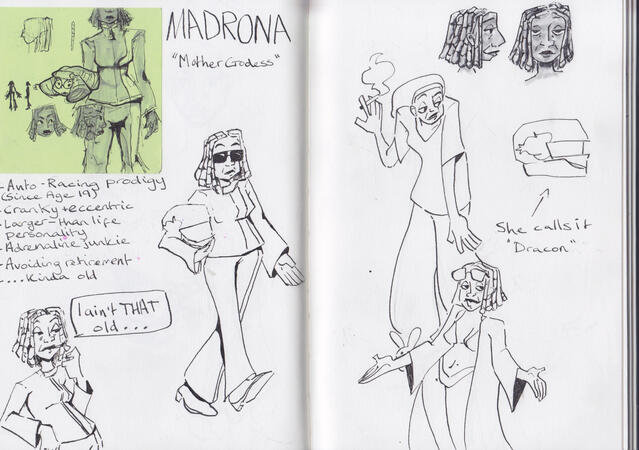 MADRONA
"Mother Godess"
- Auto-Racing prodigy
(Since Age 19)
- Cranky + eccentric
- Larger-than life
personality
- Adrenaline junkie
- Avoiding retirement
- .... Kinda old
I ain't THAT
old...
She calls it
"Dracon"